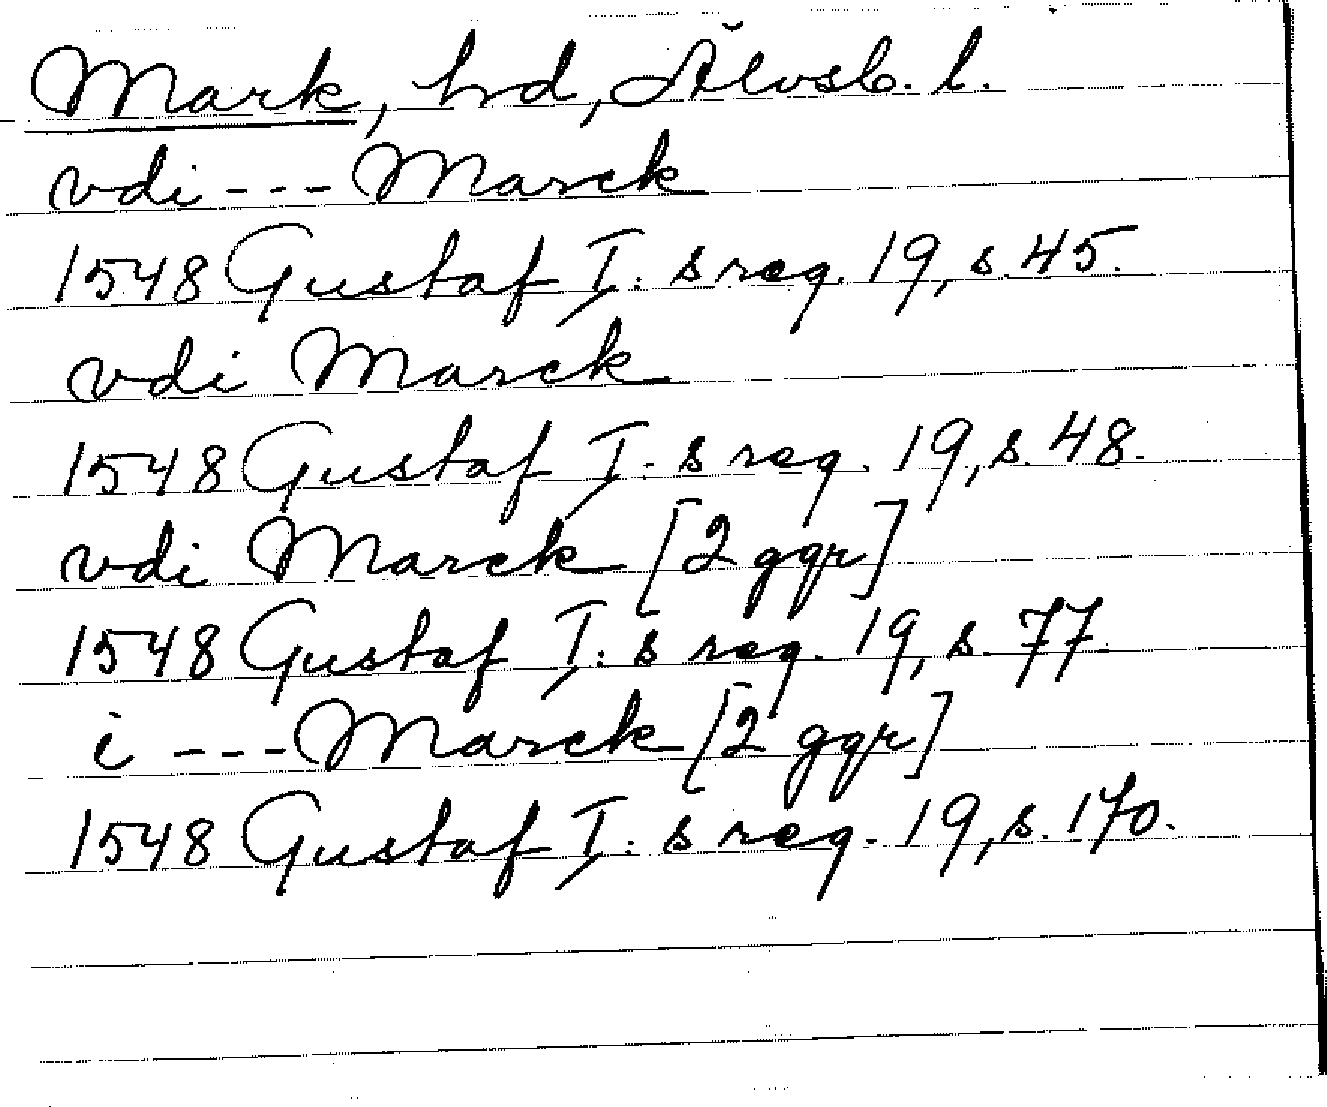 Mark, hd, Älvsb. l.
vdi --- Marck
1548 Gustaf I:s reg. 19, s. 45.
vdi Marck
1548 Gustaf I:s reg. 19, s. 48.
vdi Marck [2 ggr]
1548 Gustaf I:s reg. 19, s. 77.
i --- Marck [2 ggr]
1548 Gustaf I:s reg. 19, s. 170.